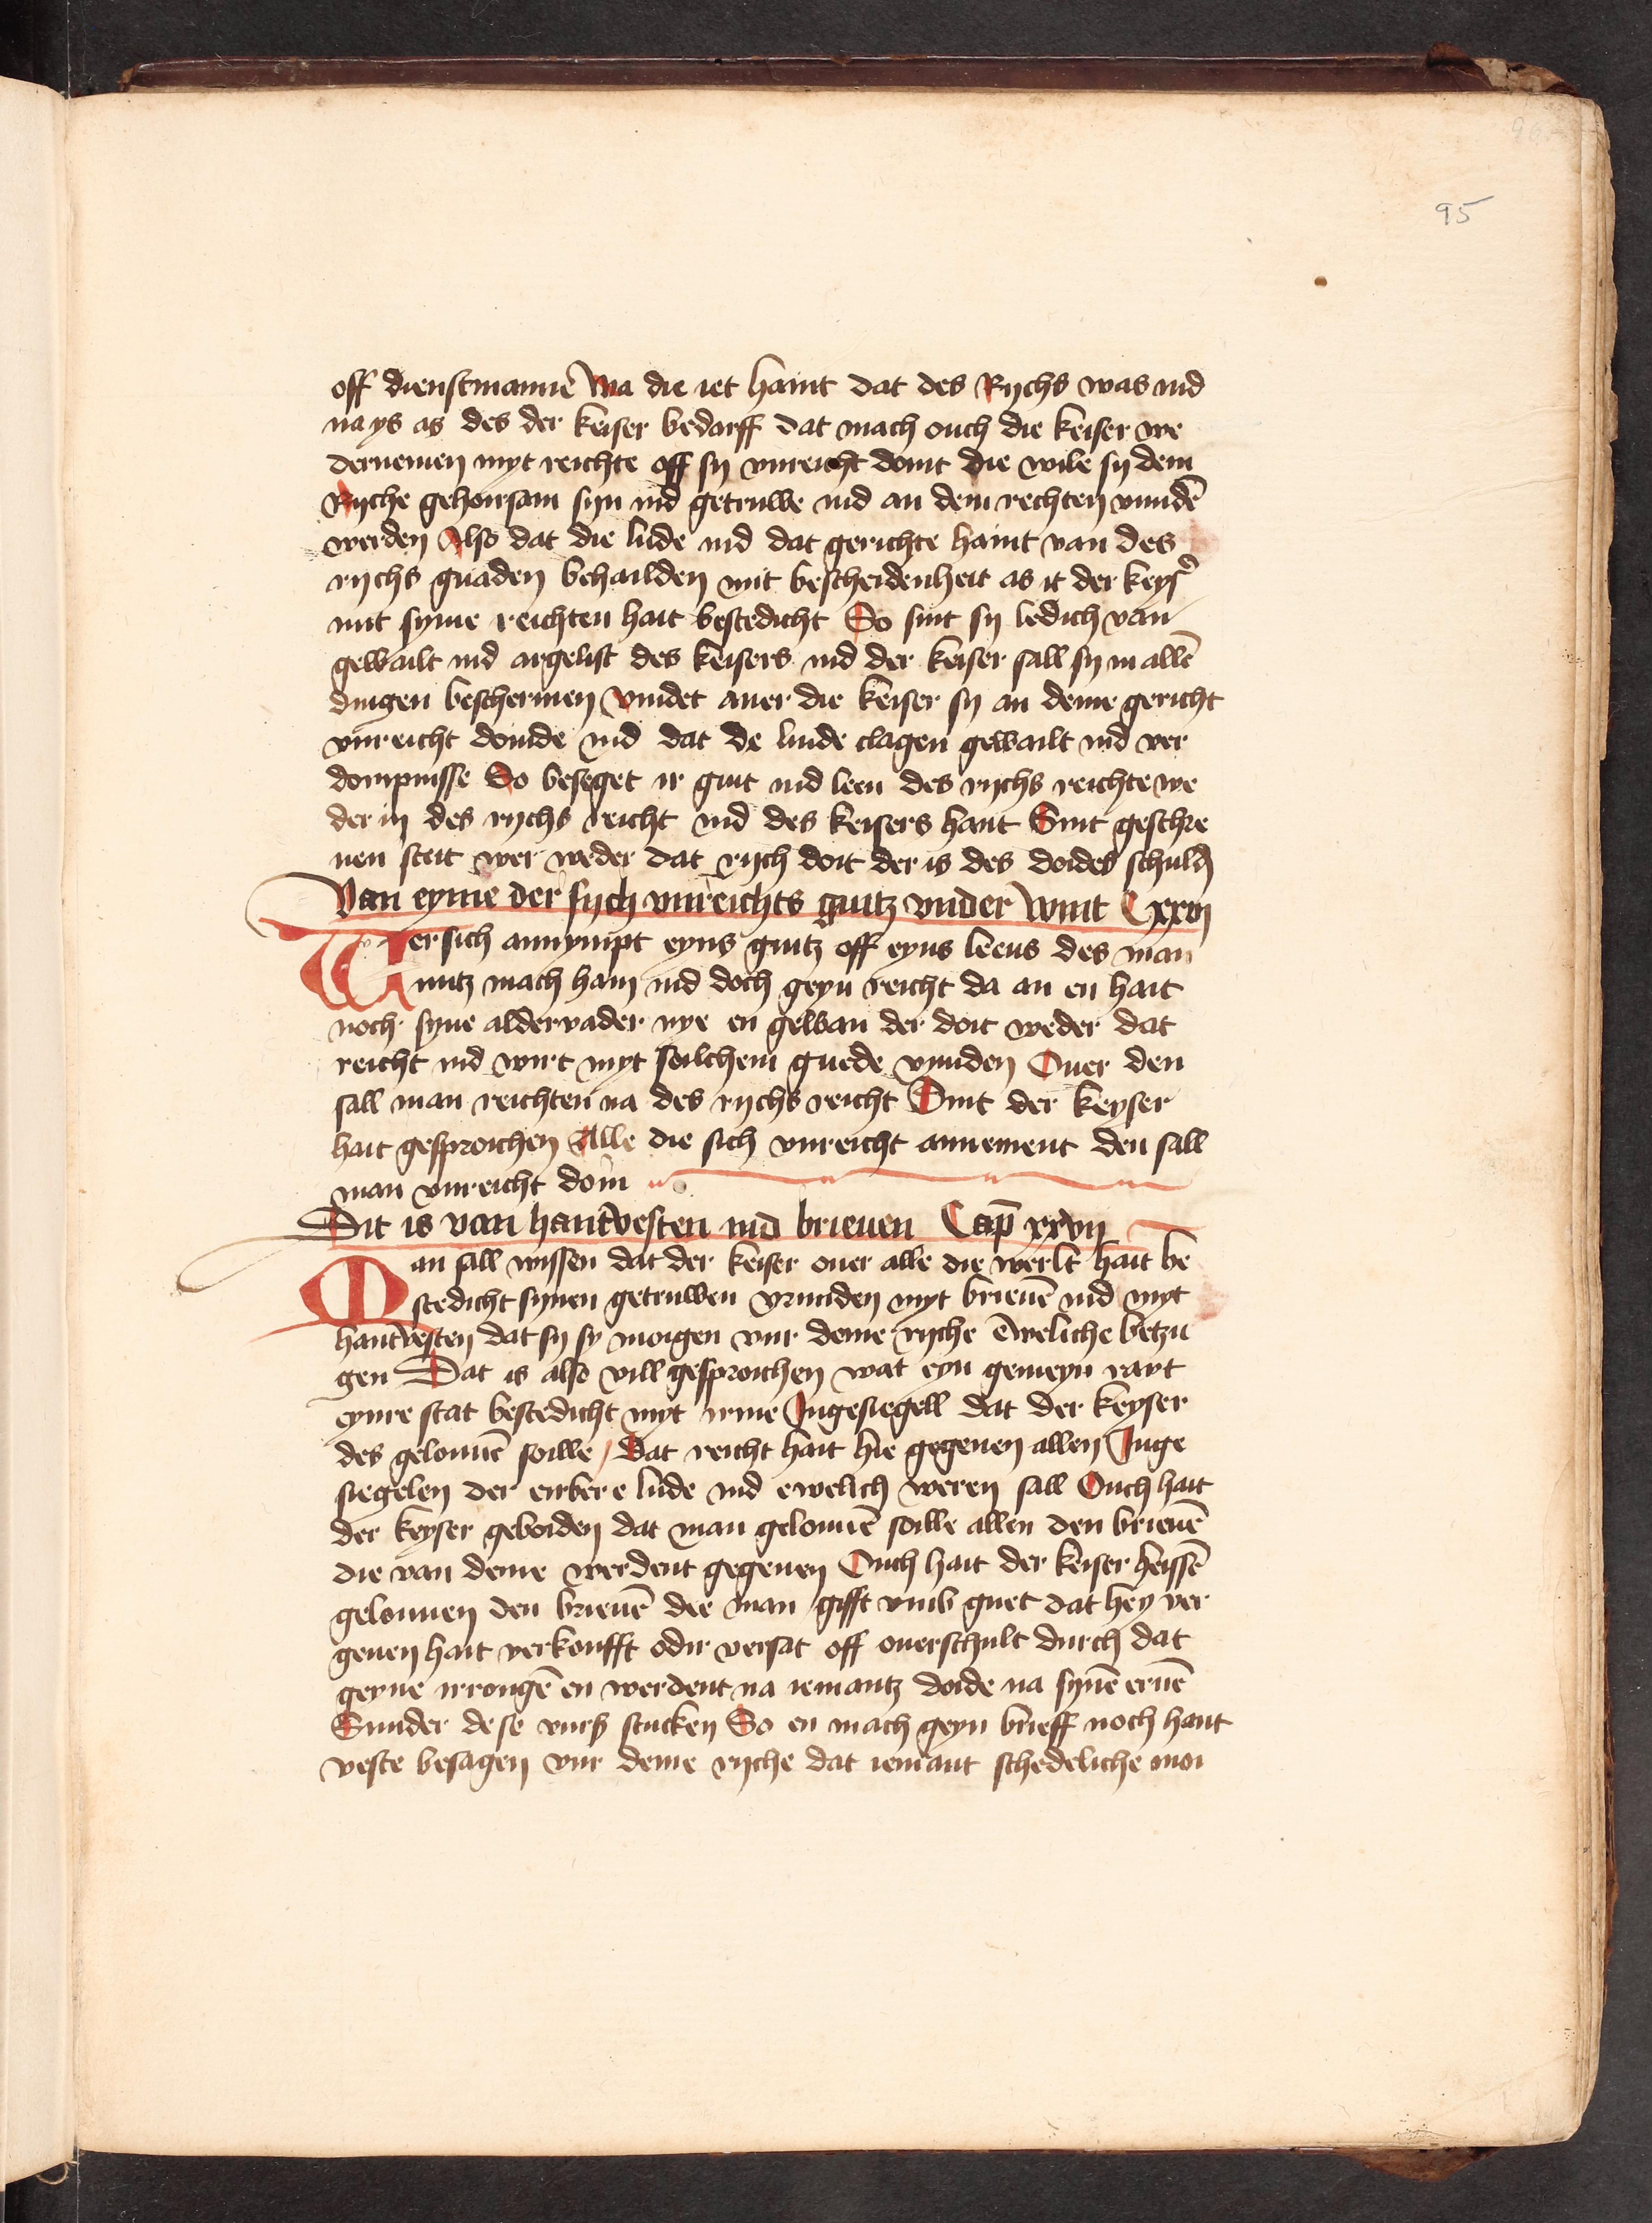 95
off dienstmannē Wa die iet haint dat des Rychs was ind
na ys as des der keiser bedarff dat mach ouch die keiser we
dernemen myt reichte off sy vnreicht doint die wile sy dem
Ryche gehoirsam syn ind getruwe ind an dem rechten vundē
werden Also dat die lude ind dat gerichte haint van des
rychs gnaden behailden mit bescheidenheit as it der keys᷎
mit syme reichten hait bestedicht So sint sy ledich van
gewailt ind argelist des keisers ind der keiser sall sy in allē
dingen beschermen Vindet auer die keiser sy an deme gericht
vnreicht doinde ind dat de luide clagen gewailt ind ver
dompnisse So beseget ir guit ind leen des rychs reichte we
der in des rychs reicht ind des keisers hant Sint geschre
uen steit wer weder dat rych doit der is des doides schuld
Van eyme der sych vnreichts guitz vnder wint C xxvj
Wer sich annympt eyns guitz off eyns leens des man
nutz mach hain ind doch geyn reicht da an en hait
noch syne aldervader nye en gewan der doit weder dat
reicht ind wirt myt soilchem guede vynden Ouer den
sall man reichten na des rychs reicht Sint der keyser
hait gesproichen Alle die sich vnreicht annement den sall
man vnreicht doin
Dit is van hantvesten ind brieuen Cap̄ xxvij
Man sall wissen dat der keiser ouer alle die werlt hait be
stedicht synen getruwen vrunden myt brieuē ind myt
hantvesten dat sy sy moigen vur deme ryche eweliche betzu
gen Dat is also vill gesproichen wat eyn gemeyn rayt
eynre stat bestedicht myt irme Ingesiegell dat der keyser
des gelouuē soille / Dat reicht hait hie gegeuen allen Inge
siegelen der eirbere lude ind ewelich weren sall Ouch hait
der keyser geboiden dat man gelouuē soille allen den brieuē
die van deme werdent gegeuen Ouch hait der keiser heissē
gelouuen den brieuē die man gifft vmb guet dat hey ver
geuen hait verkoufft odir versat off ouerschult durch dat
geyne irrongē en werdent na iemantz doide na synē eruē
Sunder dese vurß stucken So en mach geyn brieff noch hant
veste besagen vur deme ryche dat iemant schedeliche moi